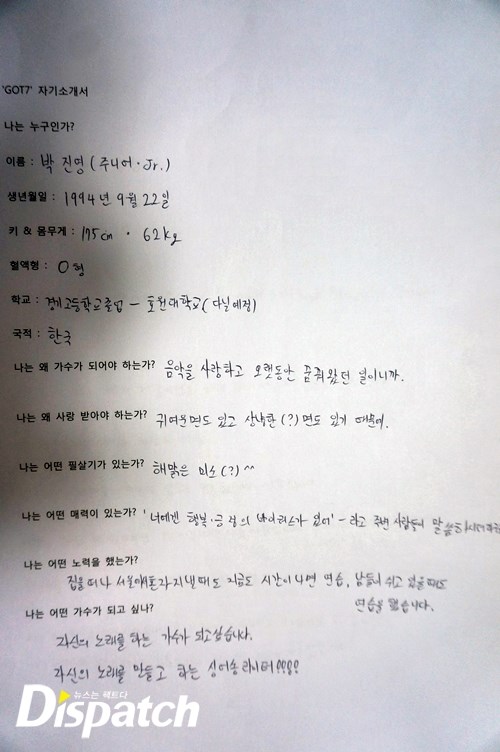 'GOT7' 자기소개서
나는 누구인가?
이름 : 박 진영 (주니어·Jr.)
생년월일 : 1994년 9월 22일
키 & 몸무게 : 175cm · 62kg
혈액형 : O형
학교 : 경기고등학교졸업 - 호원대학교 (다닐예정)
국적 : 한국
나는 왜 가수가 되어야 하는가? 음악을 사랑하고 오랫동안 꿈꿔왔던 일이니까.
나는 왜 사랑 받아야 하는가? 귀여운면도 있고 상냥한(?)면도 있기 때문에.
나는 어떤 필살기가 있는가? 해맑은 미소(?)^^
나는 어떤 매력이 있는가? '너에겐 행복·긍정의 바이러스가 있어' - 라고 주변 사람들이 말씀하시더라
나는 어떤 노력을 했는가?
집을 떠나 서울에 혼자 지낼때도 지금도 시간이 나면 연습, 남들이 쉬고 있을때도
연습을 했습니다.
나는 어떤 가수가 되고 싶나?
자신의 노래를 하는 가수가 되고싶습니다.
자신의 노래를 만들고 하는 싱어송라이터????
뉴스는 팩트다
Dispatch